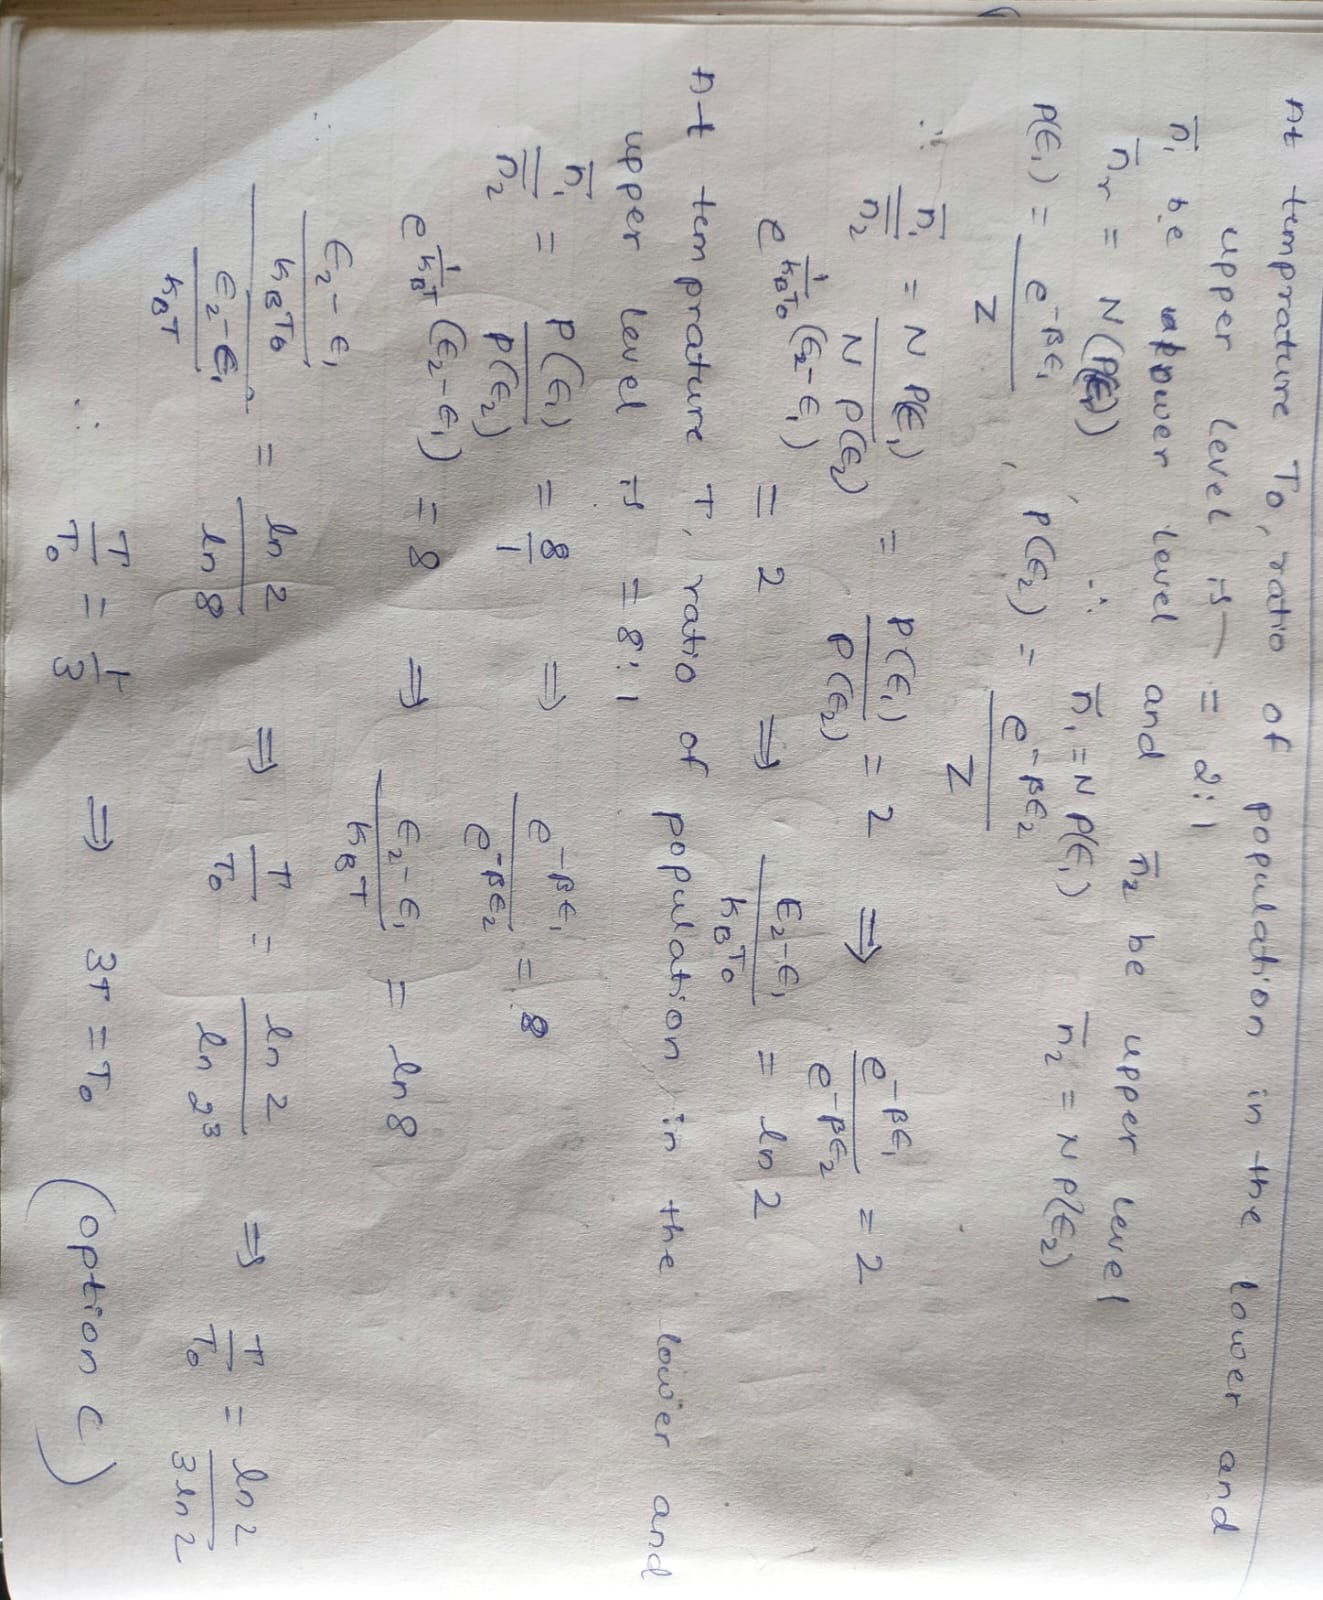 At temprature T₀, ratio of population in the lower and
upper level is = 2:1
n̄₁ be upower level and n̄₂ be upper level
n̄ᵣ = N(P(ϵᵣ)) , ∴ n̄₁ = N P(ϵ₁) n̄₂ = N P(ϵ₂)
P(ϵ₁) = e^{-βϵ₁}/Z , P(ϵ₂) = e^{-βϵ₂}/Z
∴ n̄₁/n̄₂ = N P(ϵ₁)/N P(ϵ₂) = P(ϵ₁)/P(ϵ₂) = 2 ⇒ e^{-βϵ₁}/e^{-βϵ₂} = 2
e^{1/K_BT₀ (ϵ₂-ϵ₁)} = 2 ⇒ ϵ₂-ϵ₁/K_BT₀ = ln 2
At temprature T, ratio of population in the lower and
upper level is = 8:1
n̄₁/n̄₂ = P(ϵ₁)/P(ϵ₂) = 8/1 ⇒ e^{-βϵ₁}/e^{-βϵ₂} = 8
e^{1/K_BT (ϵ₂-ϵ₁)} = 8 ⇒ ϵ₂-ϵ₁/K_BT = ln 8
∴ (ϵ₂-ϵ₁/K_BT₀)/(ϵ₂-ϵ₁/K_BT) = ln 2/ln 8 ⇒ T/T₀ = ln 2/ln 2³ ⇒ T/T₀ = ln 2/3 ln 2
∴ T/T₀ = 1/3 ⇒ 3T = T₀ (option C)